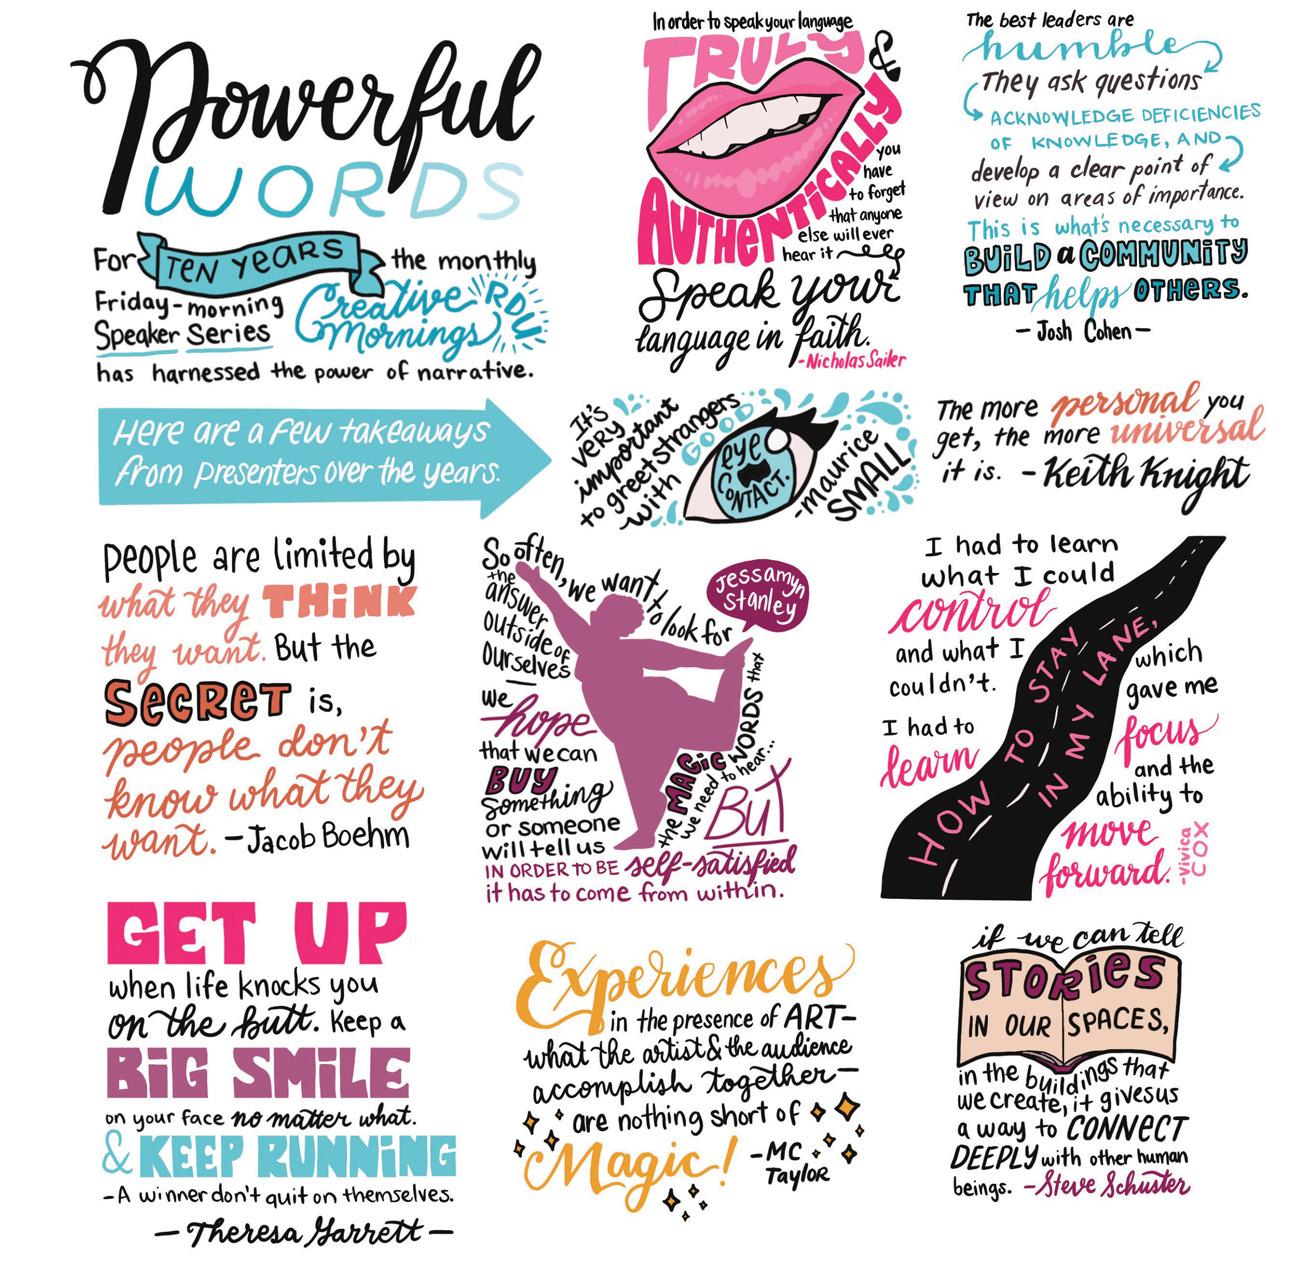 Powerful
WORDS
For TEN YEARS the monthly
Friday-morning
Speaker Series
Creative
Mornings RDU
has harnessed the power of narrative.
Here are a few takeaways
from presenters over the years.
In order to speak your language
TRULY &
AUTHENTICALLY
you
have
to forget
that anyone
else will ever
hear it
Speak your
language in faith.
-Nicholas Sailer
The best leaders are
humble
They ask questions
ACKNOWLEDGE DEFICIENCIES
OF KNOWLEDGE, AND
develop a clear point of
view on areas of importance.
This is what's necessary to
BUILD a COMMUNITY
THAT helps OTHERS.
- Josh Cohen -
It's
very
important
to greet strangers
with GOOD
eye
CONTACT.
-maurice
SMALL
The more personal you
get, the more universal
it is. - Keith Knight
People are limited by
what they THINK
they want. But the
SECRET is,
people don't
know what they
want. - Jacob Boehm
So often, we want to look for
the
answer
outside of
ourselves
we
hope
that we can
BUY
something
or someone
will tell us
the MAGIC WORDS that
we need to hear...
BUT
IN ORDER TO BE self-satisfied
it has to come from within.
Jessamyn
Stanley
I had to learn
what I could
control
and what I
couldn't.
I had to
learn
HOW TO STAY
IN MY LANE,
which
gave me
focus
and the
ability to
move
forward.
-vivica
COX
GET UP
when life knocks you
on the butt. Keep a
BIG SMILE
on your face no matter what.
& KEEP RUNNING
-A winner don't quit on themselves.
- Theresa Garrett -
Experiences
in the presence of ART-
what the artist & the audience
accomplish together-
are nothing short of
Magic! -MC
Taylor
if we can tell
STORIES
IN OUR SPACES,
in the buildings that
we create, it gives us
a way to CONNECT
DEEPLY with other human
beings. -Steve Schuster